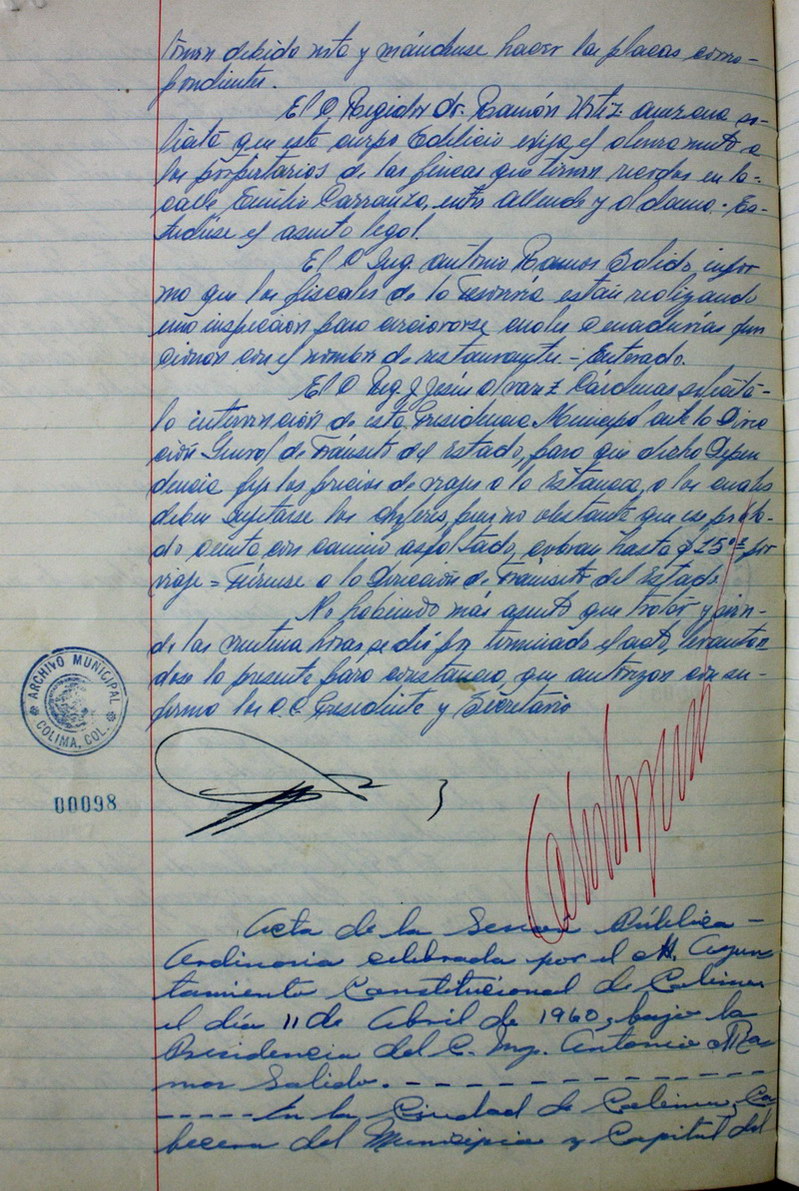 toman debida nota y mándense hacer las placas corres-
pondientes.
El C. Regidor Dr. Ramón Ortiz Anzana so-
licitó que este cuerpo Edilicio exija el a
los propietarios de las fincas que tienen en la-
calle Emilio Carranza, entre Allende y Aldama.- Es-
tudiese el asunto legal.
El C. Ing. Antonio Ramos Salido, infor
mo que los fiscales de la Tesorería, están realizando
una inspección para cerciorarse cuales Cenadurías fun
cionan con el nombre de restaurantes.- Enterado.
El C. Ing. J. Jesús Alvarez Cárdenas solicitó-
la intervención de esta Presidencia Municipal ante la Direc
ción General de Tránsito del Estado, para que dicha Depen
dencia fije los precios de viajes a la Estancia, a los cuales
deben sujetarse los choferes, pues no obstante que ese pobla-
do cuenta con camino asfaltado, cobran hasta $15.00 por
viaje = a la Dirección de Tránsito del Estado
No habiendo más asunto que tratar y sien-
do las veintiuna horas se dió por terminado el acto, levantán
dose la presente para constancia, que autorizan con su-
firma los C.C. Presidente y Secretario
ARCHIVO MUNICIPAL
COLIMA, COL.
00098
Acta de la Sesión Pública -
Ordinaria celebrada por el H. Ayun
tamiento Constitucional de Colima
el día 11 de Abril de 1960, bajo la
Presidencia del C. Ing. Antonio Ra
mos Salido. - - - - - - - - - - - -
- - - - - En la Ciudad de Colima, Ca
becera del Municipio y Capital del